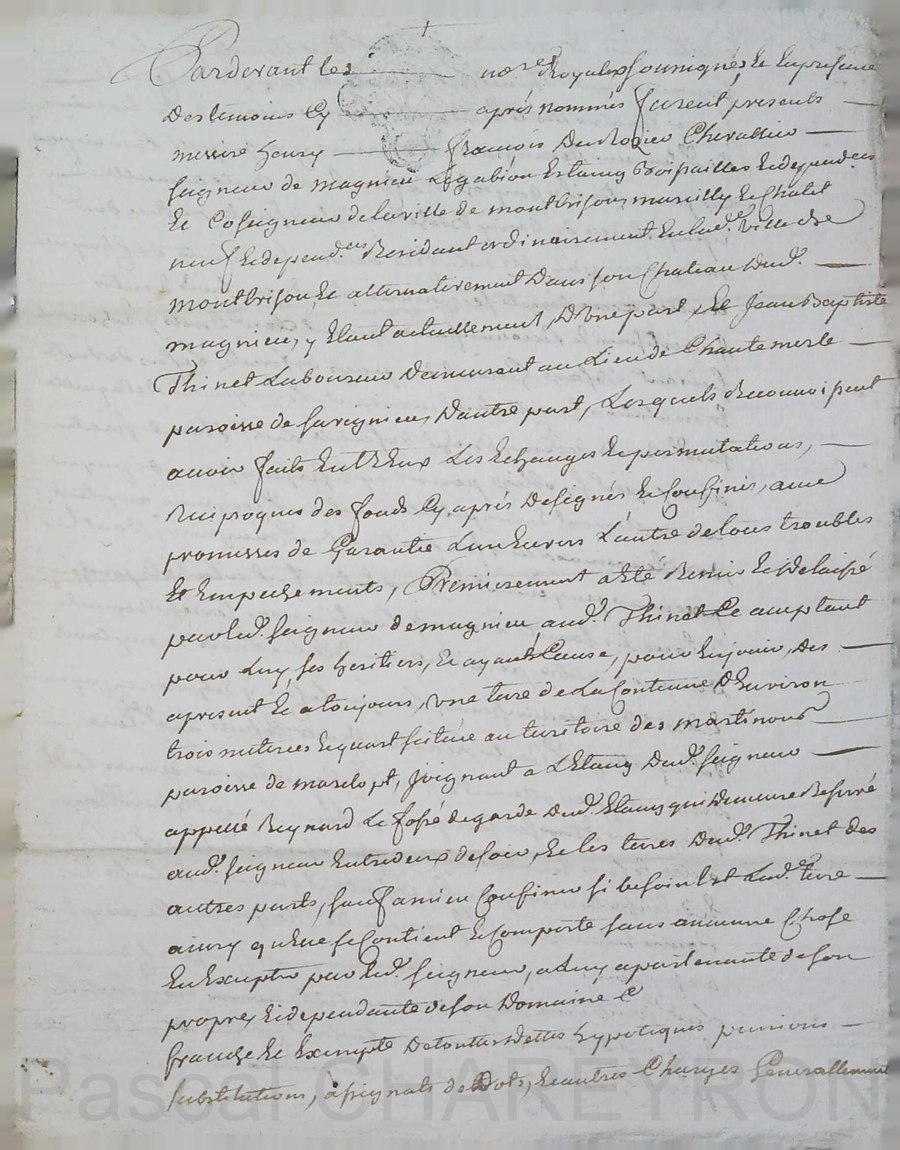 Pardevant les nores Royaux sousignés, Et En presence
Des temoins Cy aprés nommés furent presents
messire henry françois Du Rozier Chevallier
seigneur de magnieu Legabion Estaing Et dependces
Et Coseigneur de la ville de montbrison, marcilly Le Chatel
neuf Et depend.ces Residant ordinairement En lad.e ville de
montbrison Et alternativement Dans son Chateau Dud.
magnieu, y Etant actuellement, D'une part, Et Jean Baptiste
Thinet Laboureur Demeurant au Lieu de Chantemerle
paroisse de savignieu, D'autre part, Lesquels Reconnoissent
avoir faits Entr'Eux Les Echanges Et permutations,
Reciproques des fonds Cy aprés Designés Et Confinés, avec
promesses de Garantie L'un Envers L'autre de tous troubles
Et Empechements, Premierement a Eté Remis Et Delaissé
par led. seigneur de magnieu aud. Thinet Ce acceptant
pour Luy, ses heritiers, Et ayants Cause, pour En jouir, Des
apresent Et a toujours, une terre de La Contenue D'Environ
trois meterées Et quart située au territoire des martinous
paroisse de marclopt, joignant a L'Etang Dud. seigneur
appellé Reynard Le fossé de garde Dud. Etang qui Demeure Reservé
aud. seigneur Entredeux de soir, Et les terres Dud. Thinet des
autres parts, sauf a mieux Confiner si besoin Est Lad.e terre
ainsy qu'Elle se Contient Et Comporte sans aucune Chose
En Excepter par led. seigneur, a Luy apartenante de son
propre, Et dependante de son Domaine
franche Et Exempte De toutes Dettes hypotèques pensions
substitutions, assignats de Dots, Et autres Charges Generallement
Pascal CHAREYRON